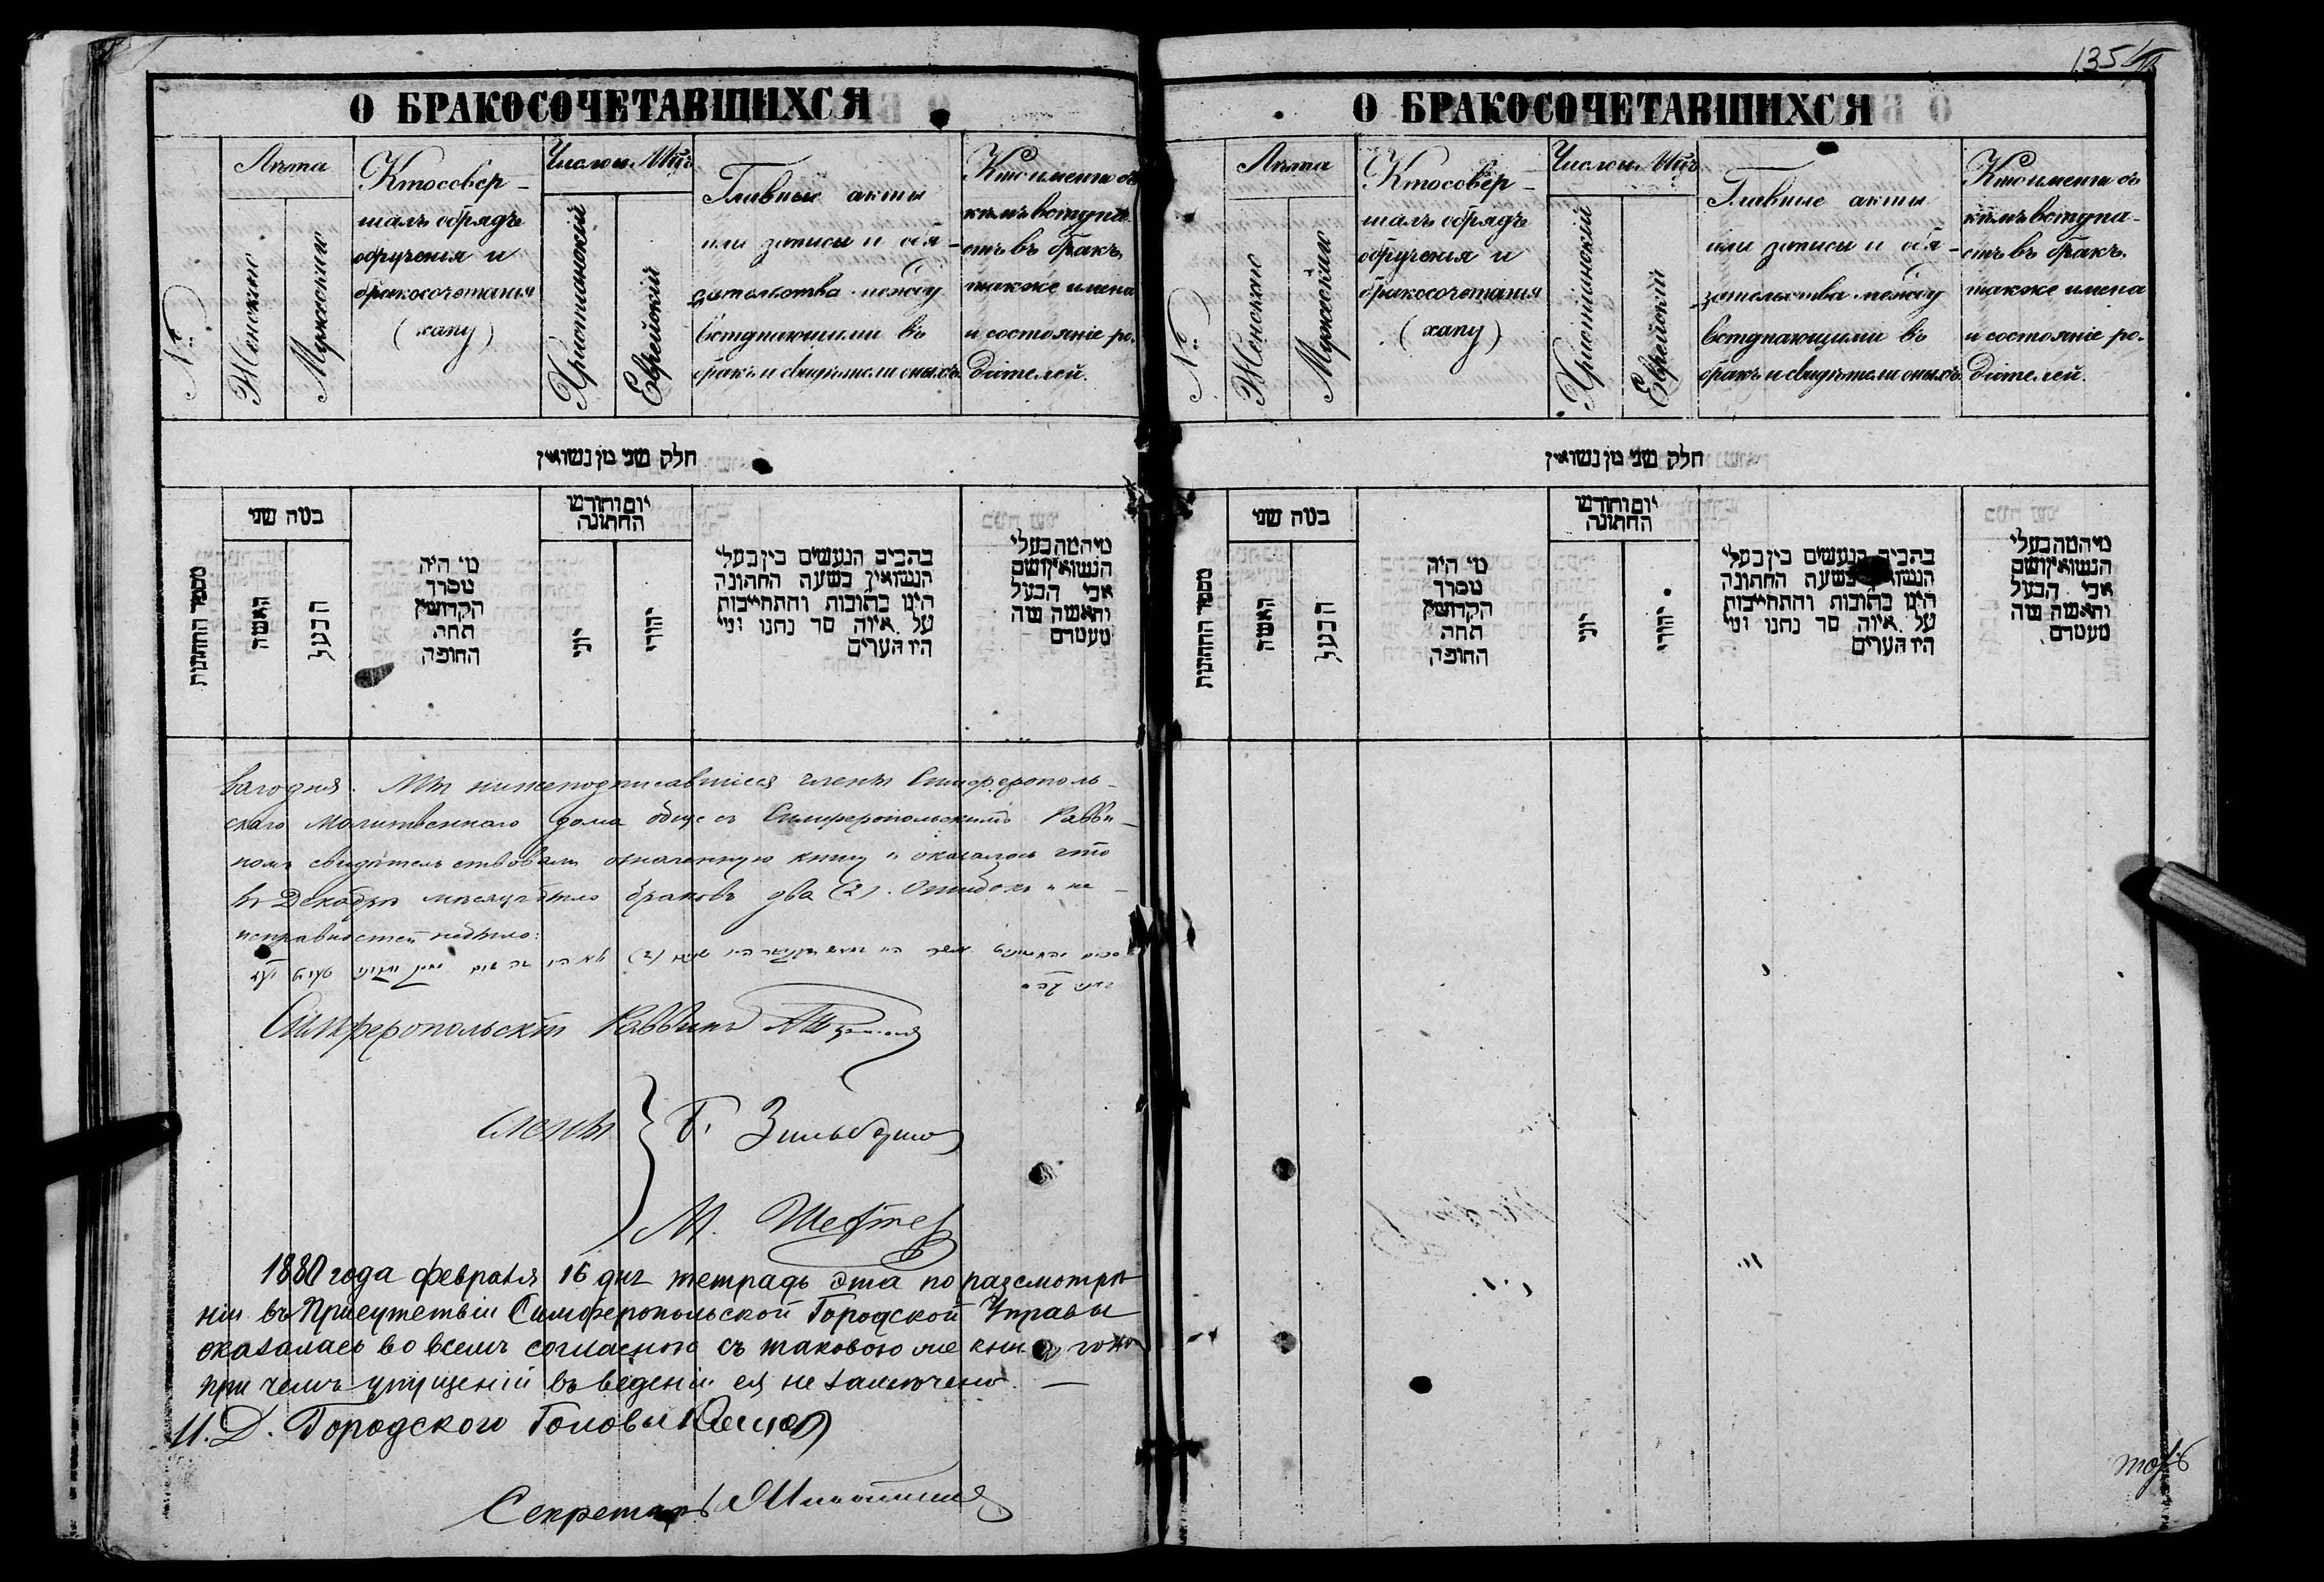 135
О БРАКОСОЧЕТАВШИХСЯ
№
Лѣта
Женскаго
Мужскаго
Кто совер-
шалъ обрядъ
обрученія и
бракосочетанія
(хапу)
Число и М-цъ
Христіанскій
Еврейскій
Главные акты
или записи и обя-
зательства между
вступающими въ
бракъ и свидѣтели оныхъ.
Кто именно съ
кѣмъ вступа-
етъ въ бракъ.
также имена
и состояніе ро-
дителей.
חלק שני מן נשואין
מספר החתונות
במה שני
האשה
הבעל
מי היה
מסדר
הקדושין
תחת
החופה
יום וחודש
החתונה
יוני
יהודי
בהכיב הנעשים בין בעלי
הנשואין בשעה החתונה
היינו כתובות והתחייבות
על איזה סך נתנו ומי
היו העדים
מיהמה בעלי
הנשואין ושם
אבי הבעל
והאשה ומה
מעמדם
Мы нижеподписавшіеся члены Симферополь-
скаго молитвеннаго дома обще съ Симферопольскимъ Равви-
номъ свидѣтельствовали означенную книгу и оказалось что
въ Декабрѣ мѣсяцѣ было браковъ два (2). Ошибокъ и не-
исправностей небыло:
Симферопольскій Раввинъ
Члены
М. Шефтель
1880 года февраля 16 дня тетрадь эта по разсмотрѣ-
ніи въ Присутствіи Симферопольской Городской Управы
оказалась во всемъ согласною съ таковою же книгою
при чемъ упущеній въ веденіи ея не замечено. —
И. Д. Городскаго Головы
Секретарь
О БРАКОСОЧЕТАВШИХСЯ
№
Лѣта
Женскаго
Мужскаго
Кто совер-
шалъ обрядъ
обрученія и
бракосочетанія
(хапу)
Число и М-цъ
Христіанскій
Еврейскій
Главные акты
или записи и обя-
зательства между
вступающими въ
бракъ и свидѣтели оныхъ.
Кто именно съ
кѣмъ вступа-
етъ въ бракъ.
также имена
и состояніе ро-
дителей.
חלק שני מן נשואין
מספר החתונות
במה שני
האשה
הבעל
מי היה
מסדר
הקדושין
תחת
החופה
יום וחודש
החתונה
יוני
יהודי
בהכיב הנעשים בין בעלי
בשעה החתונה
היינו כתובות והתחייבות
על איזה סך נתנו ומי
היו העדים
מיהמה בעלי
הנשואין ושם
אבי הבעל
והאשה ומה
מעמדם